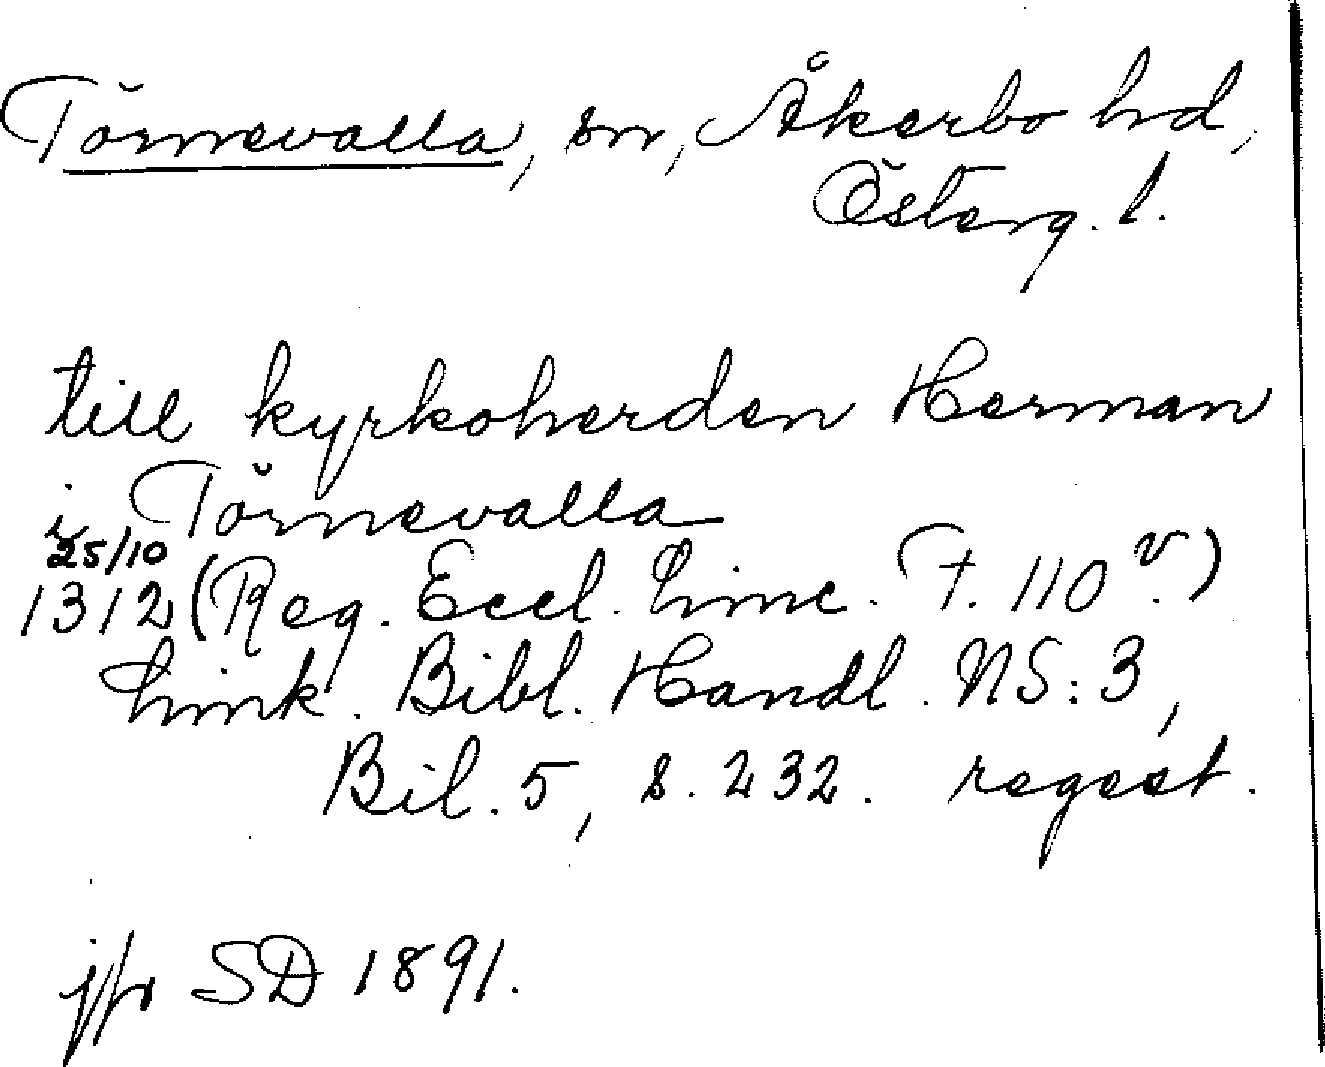 Törnevalla, sn, Åkerbo hd,
Österg. l.
till kyrkoherden Herman
i Törnevalla
25/10
1312 (Reg. Eccl. Linc. F. 110 v.)
Link. Bibl. Handl. NS: 3,
Bil. 5, s. 232. regest.
jfr SD 1891.